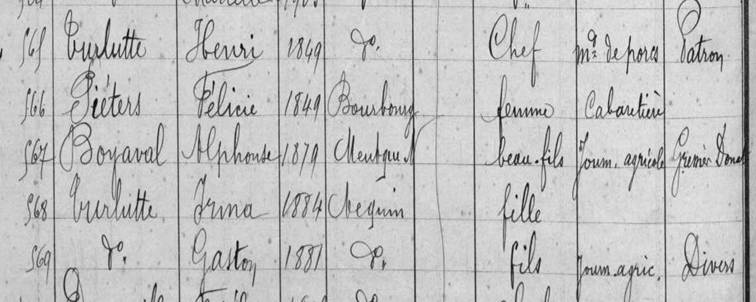 565 Turlutte Henri 1849 do. Chef md de porcs Patron
566 Piéters Félicie 1849 Bourbourg femme Cabaretière
567 Boyaval Alphonse 1879 beau-fils Journ. agricole
568 Turlutte Irma 1884 fille
569 do. Gaston 1881 do. fils Journ. agric. Divers